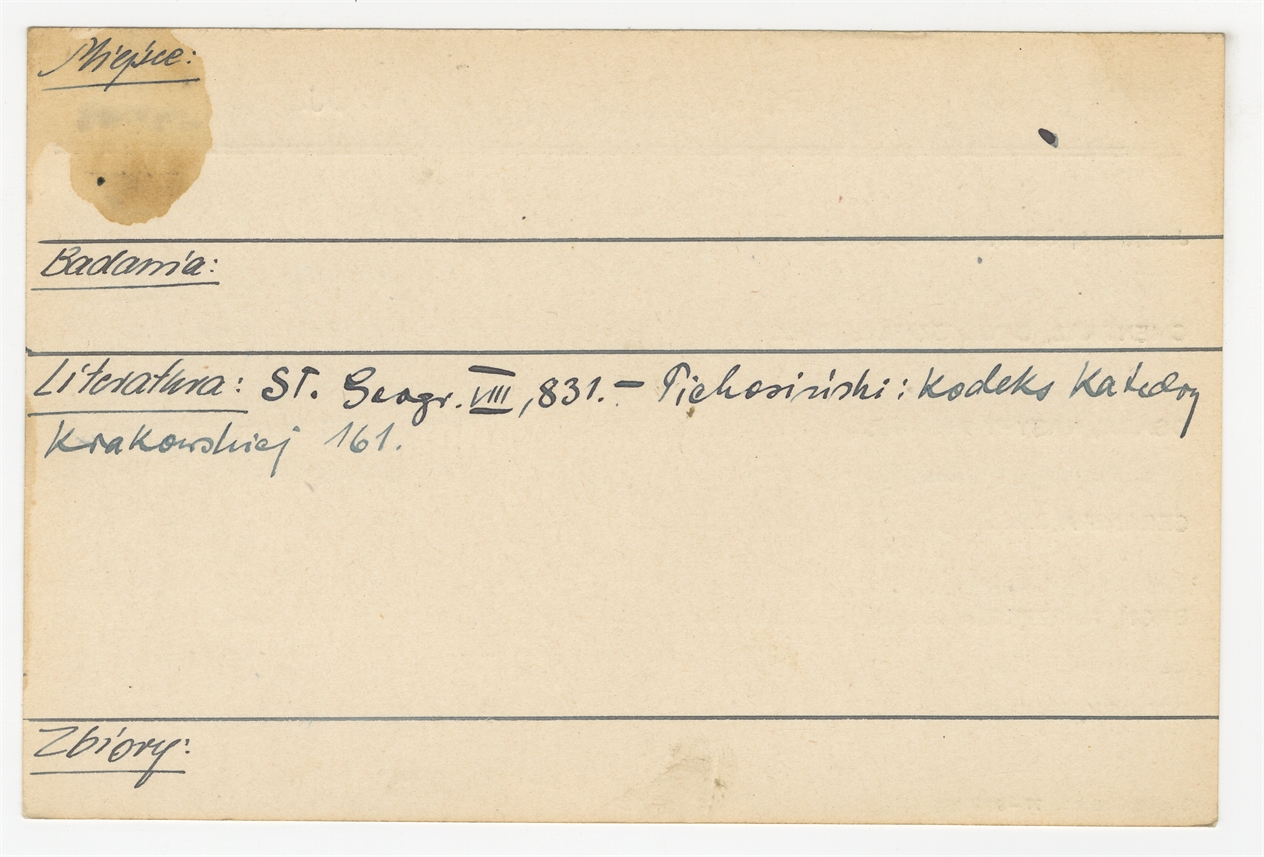 Miejsce:
Badania:
Literatura: Sł. Geogr. VIII, 831. – Piekosiński: Kodeks Katedry
Krakowskiej 161.
Zbiory: